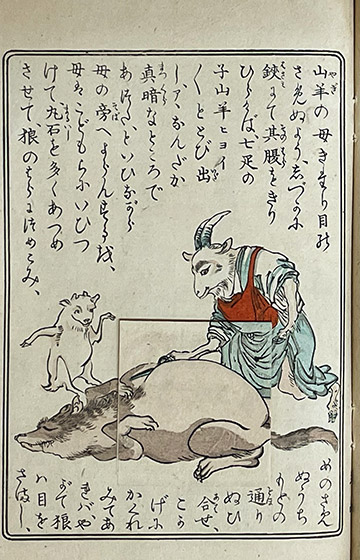 山羊の母 目の
さめぬよう、志づかに
鋏にて其腹をきり
ひらけば七疋の
子山羊ヒヨイ
〱ととび出
し、ア、なんだか
真暗なところで
あつた、といひながら
母の旁へ するを、
母ハこどもらにいひつ
けて丸石を多くあつめ
させて、狼のはらにつめこみ、
めのさめ
ぬうち
もとの
通り
ぬひ
合せ、
こか
げに
かくれ
みてあ
れバや
がて狼
ハ目を
さまし、